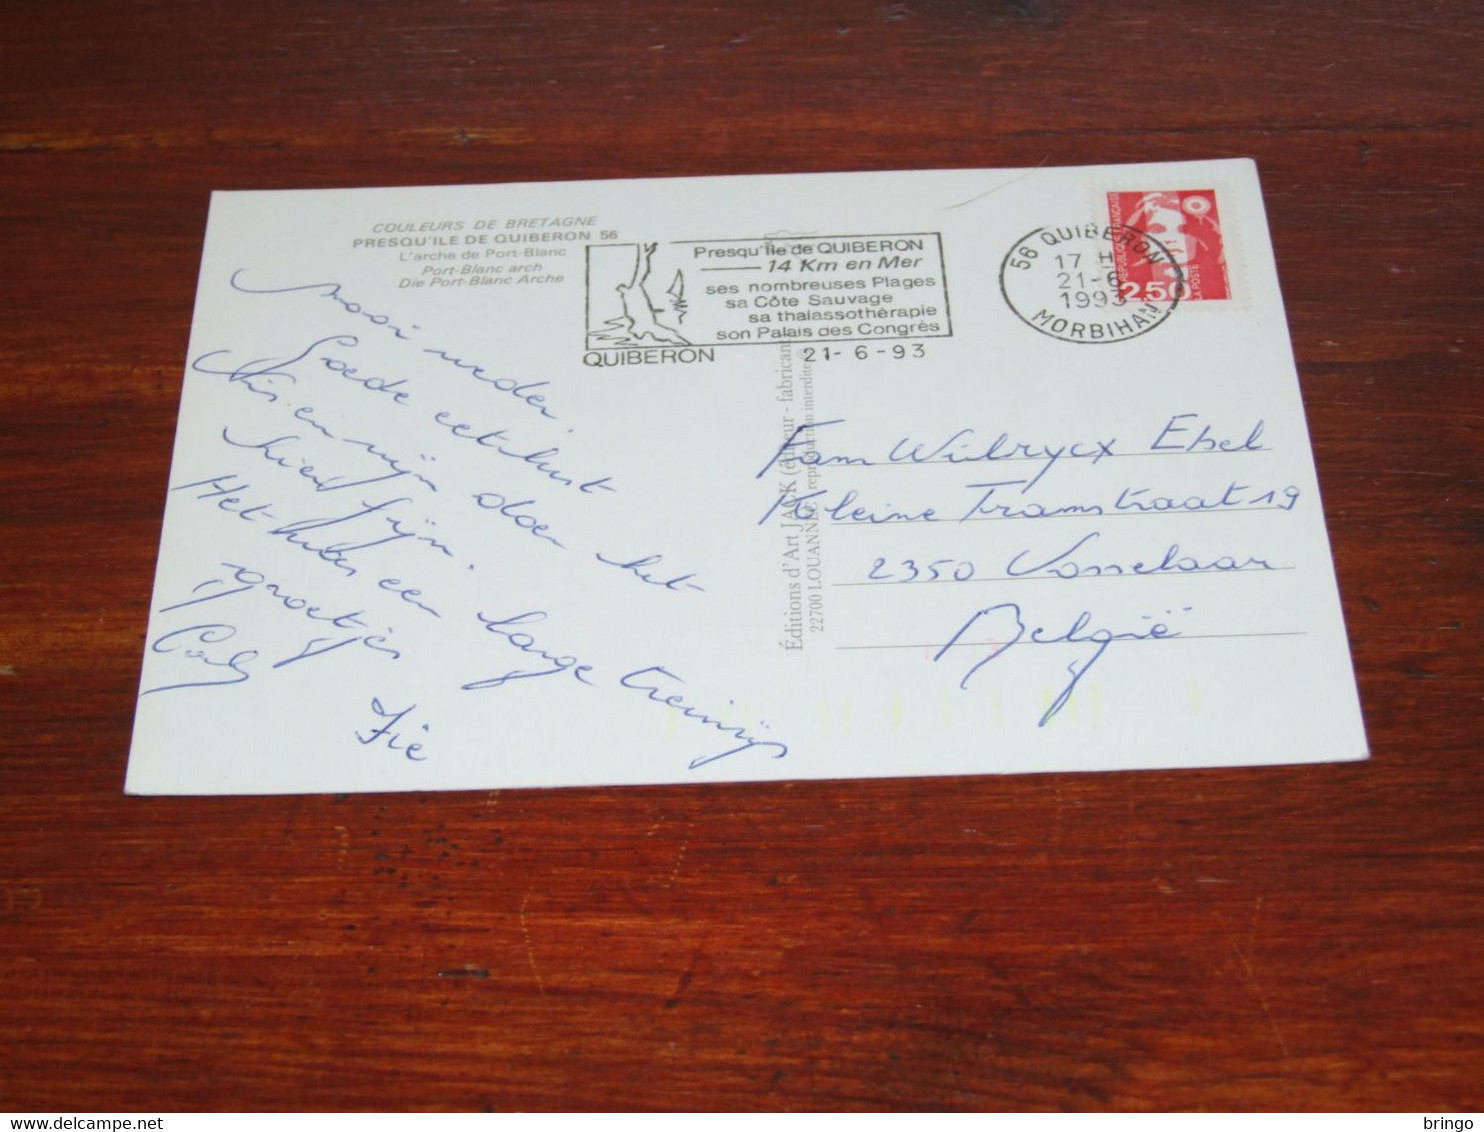 COULEURS DE BRETAGNE
PRESQU'ILE DE QUIBERON 56
L'arche de Port-Blanc
Port-Blanc arch
Die Port-Blanc Arche
Mooi weder.
Goede eetlust
Vis en wijn doen het
hier fijn.
Het was een lange treinrijs
groetjes
Fie
QUIBERON
Presqu'île de QUIBERON
14 Km en Mer
ses nombreuses Plages
sa Côte Sauvage
sa thalassothérapie
son Palais des Congrès
21-6-93
56 QUIBERON
17 H
21-6
1993
MORBIHAN
RÉPUBLIQUE FRANÇAISE
2.50
LA POSTE
Éditions d'Art JACK (éditeur - fabricant)
22700 LOUANNEC reproduction interdite
Fam Wilrycx Ebel
Kleine Tramstraat 19
2350 Vosselaar
België
delcampe.net
bringo